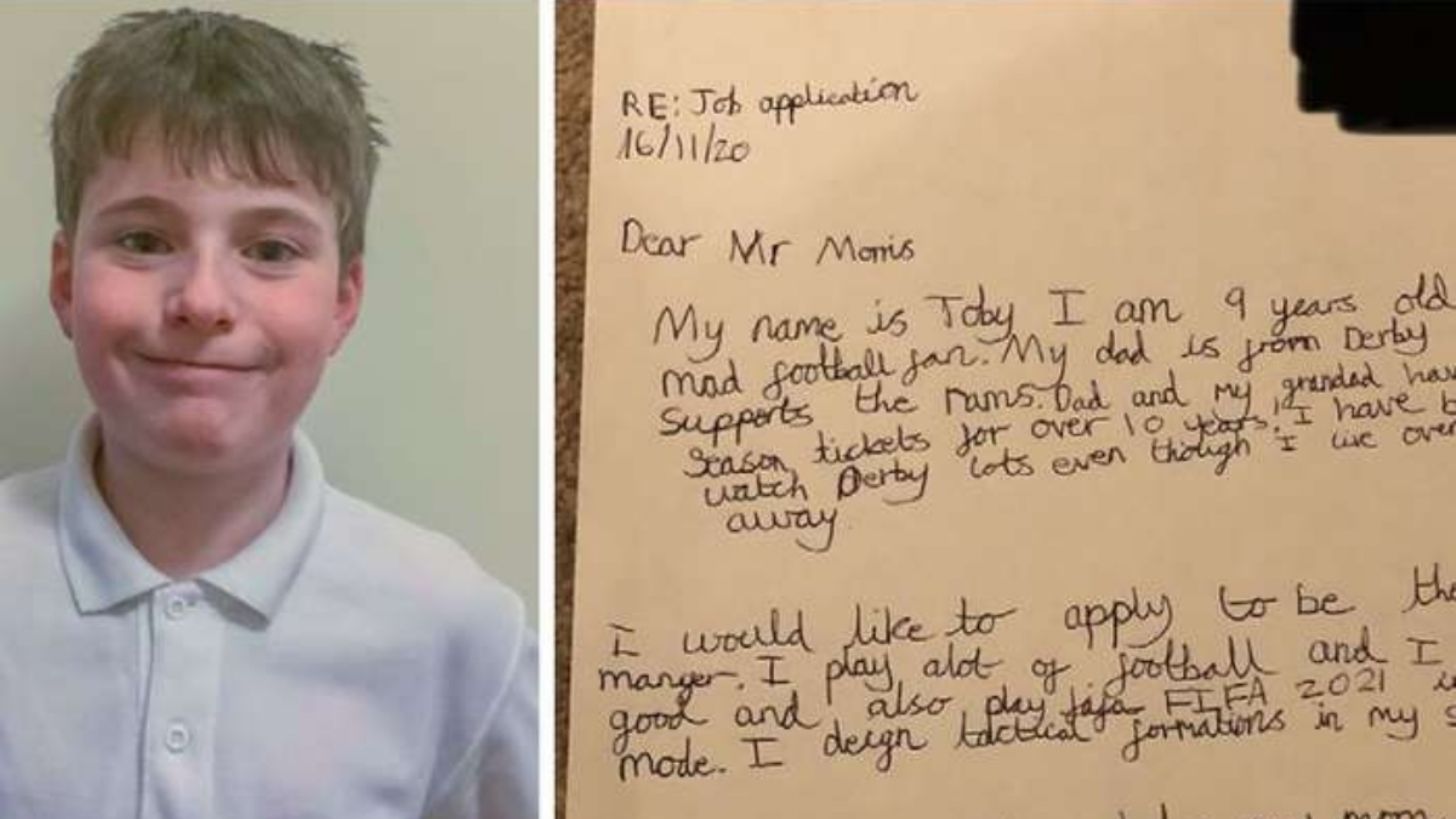 RE: Job application
16/11/20
Dear Mr Morris
My name is Toby I am 9 years old
mad football fan. My dad is from Derby
Supports the rams. Dad and my grandad hav
Season tickets for over 10 years! I have b
watch Derby lots even though I live over
away
I would like to apply to be the
manger. I play alot of football and I
good and also play fafa FIFA 2021 i
mode. I deign tactical formations in my s
mom